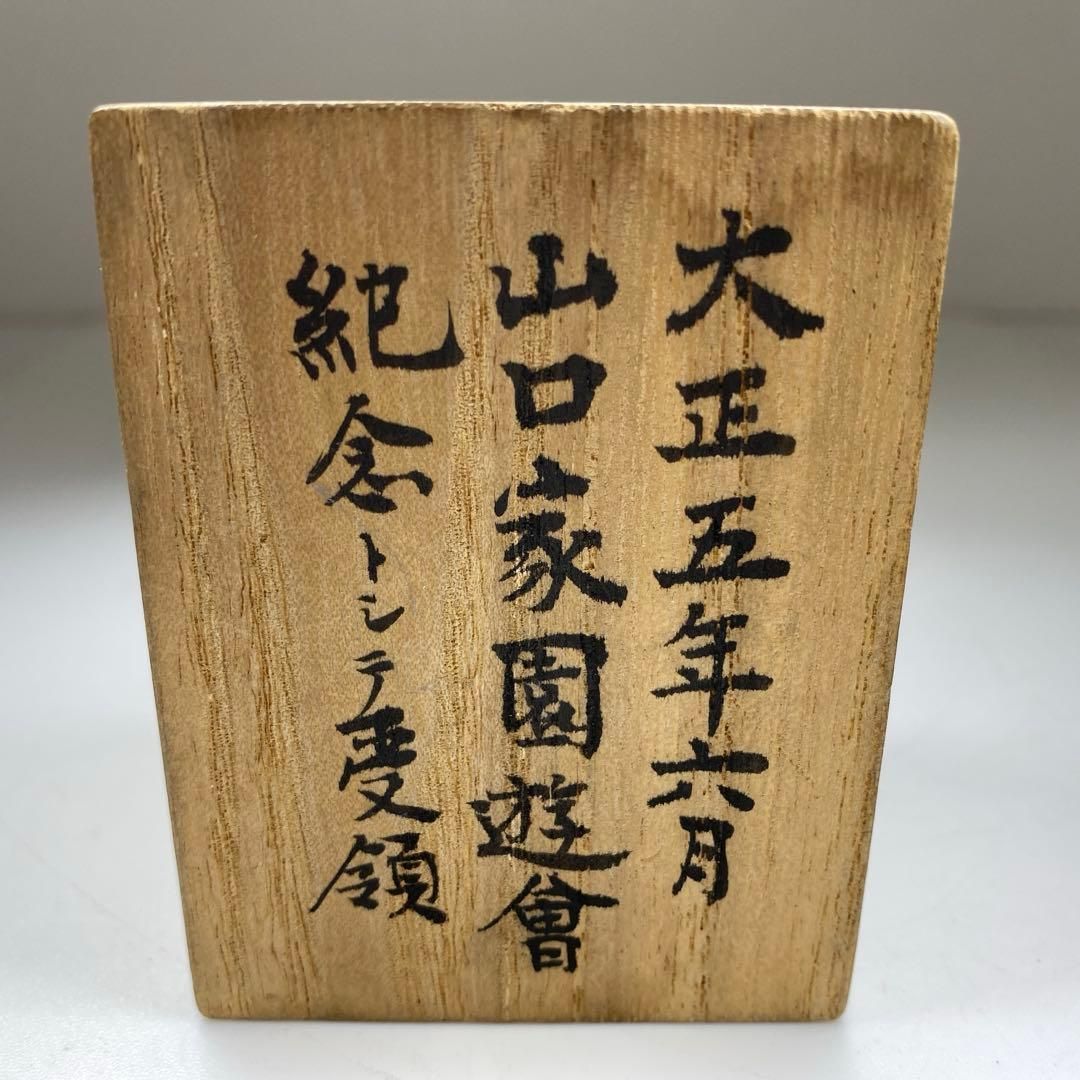 大正五年六月
山口家園遊會
紀念トシテ受領